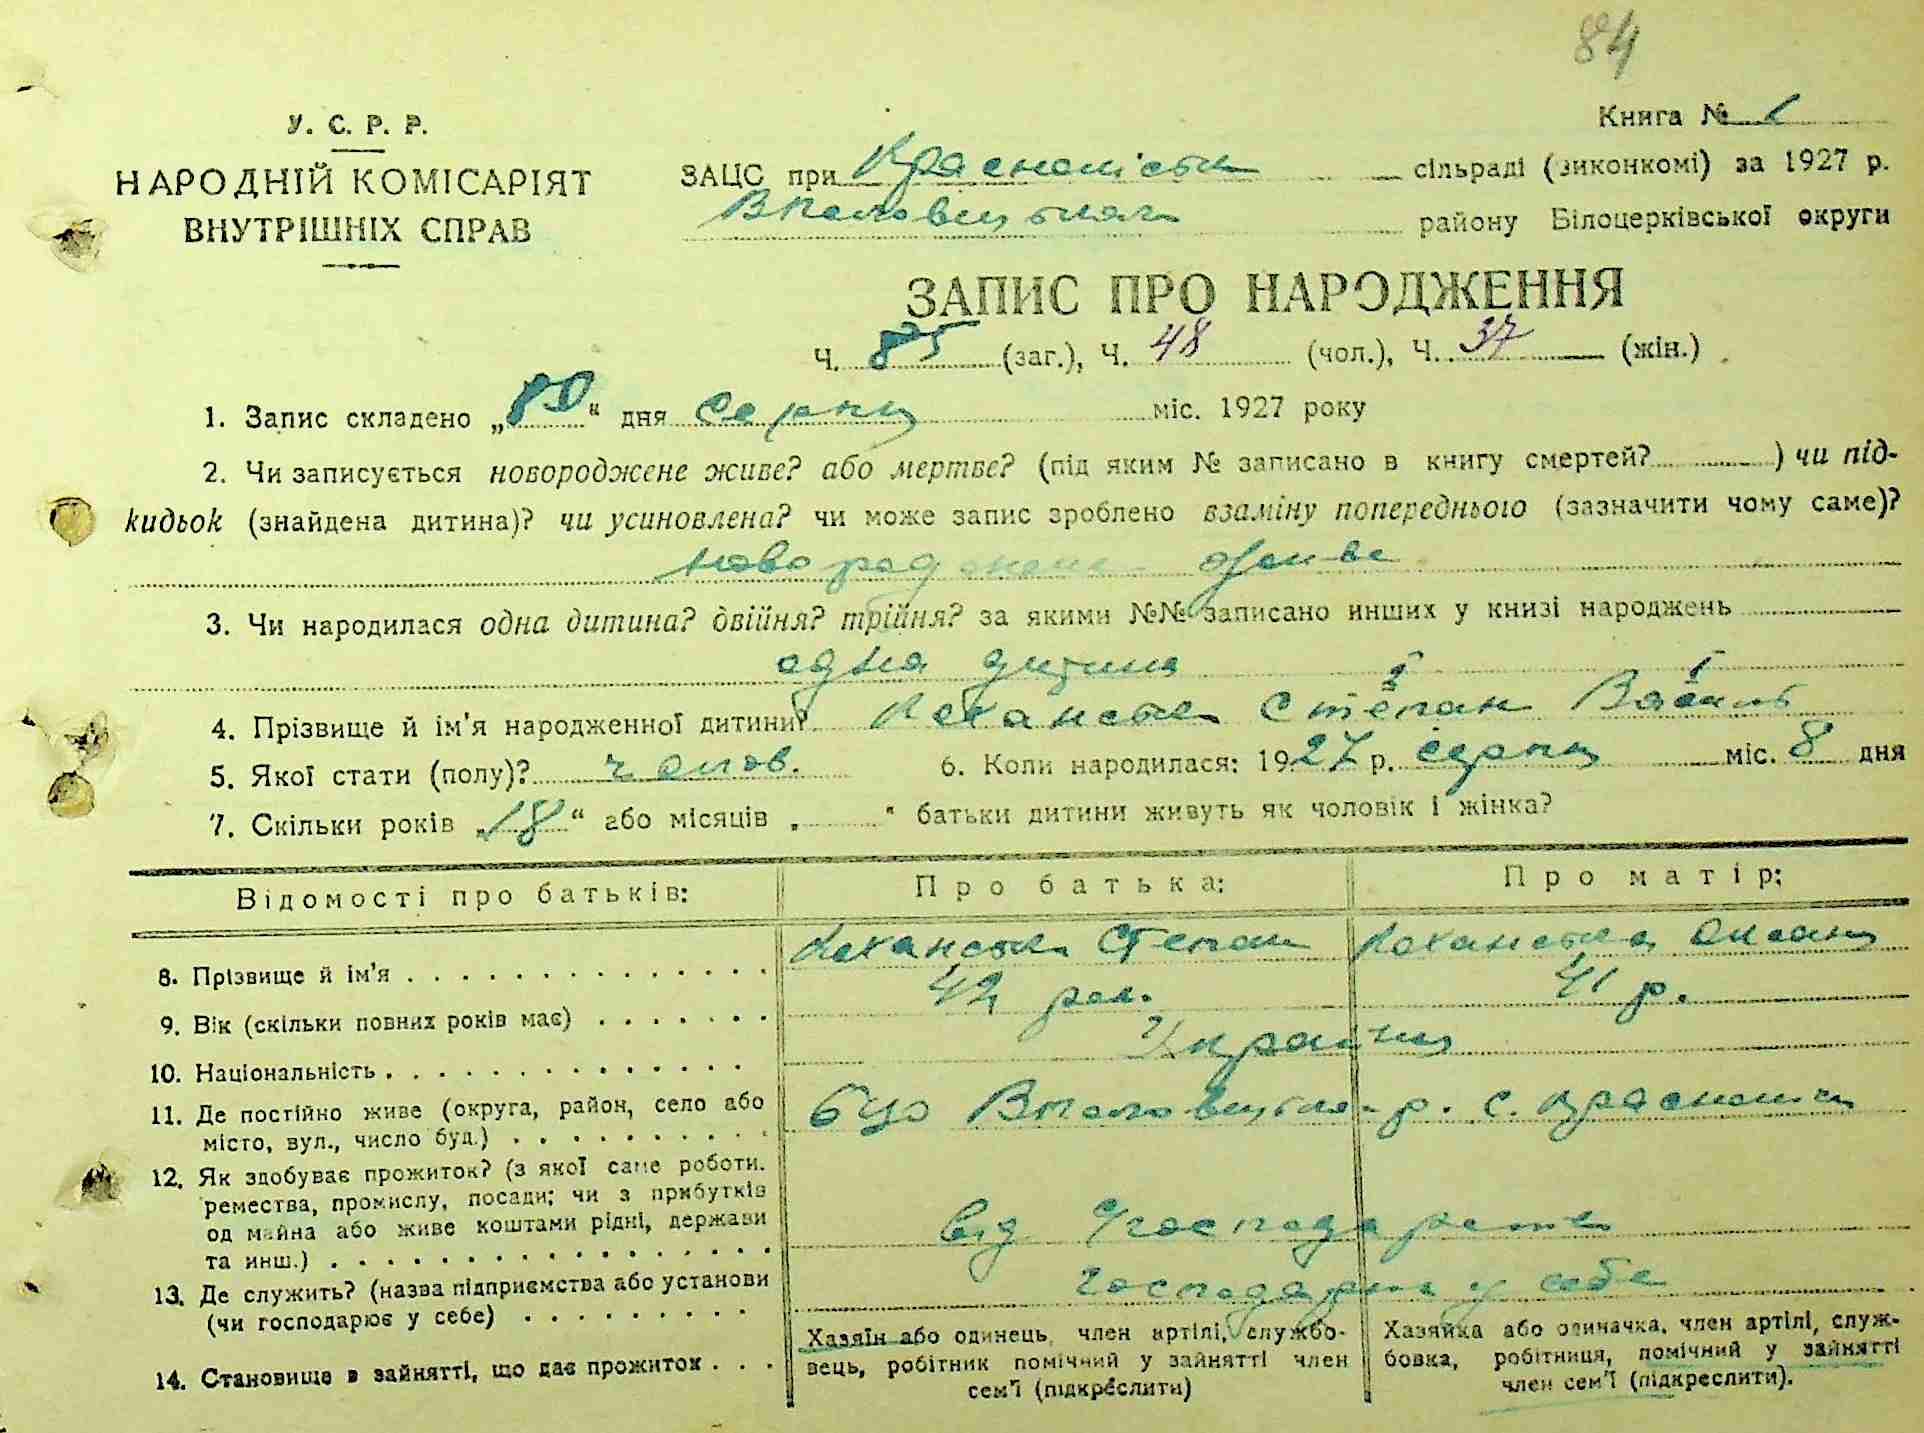 84
Книга № 1
У. С. Р. Р.
НАРОДНІЙ КОМІСАРІЯТ
ВНУТРІШНІХ СПРАВ
ЗАЦС при сільраді (виконкомі) за 1927 р.
району Білоцерківської округи
ЗАПИС ПРО НАРОДЖЕННЯ
Ч. 85 (заг.), Ч. 48 (чол.), Ч. 37 (жін.)
1. Запис складено „ “ дня міс. 1927 року
2. Чи записується новороджене живе? або мертве? (під яким № записано в книгу смертей? ) чи під-
кидьок (знайдена дитина)? чи усиновлена? чи може запис зроблено взаміну попереднього (зазначити чому саме)?
живе
3. Чи народилася одна дитина? двійня? трійня? за якими №№ записано инших у книзі народжень
одна дитина
4. Прізвище й ім'я народженної дитини? Степан
5. Якої стати (полу)? чолов. 6. Коли народилася: 1927 р. серпня міс. 8 дня
7. Скільки років „18“ або місяців „ “ батьки дитини живуть як чоловік і жінка?
Відомості про батьків: Про батька: Про матір:
8. Прізвище й ім'я Степан
9. Вік (скільки повних років має) 42 41 р.
10. Національність
11. Де постійно живе (округа, район, село або
місто, вул., число буд.) БЦО р. с.
12. Як здобуває прожиток? (з якої саме роботи.
ремества, промислу, посади; чи з прибутків
од майна або живе коштами рідні, держави
та инш.) від
13. Де служить? (назва підприємства або установи
(чи господарює у себе) у себе
14. Становище в зайнятті, що дає прожиток
Хазяїн або одинець, член артілі, службо-
вець, робітник помічний у зайнятті член
сем'ї (підкреслити)
Хазяйка або одиначка, член артілі, служ-
бовка, робітниця, помічний у зайнятті
член сем'ї (підкреслити).